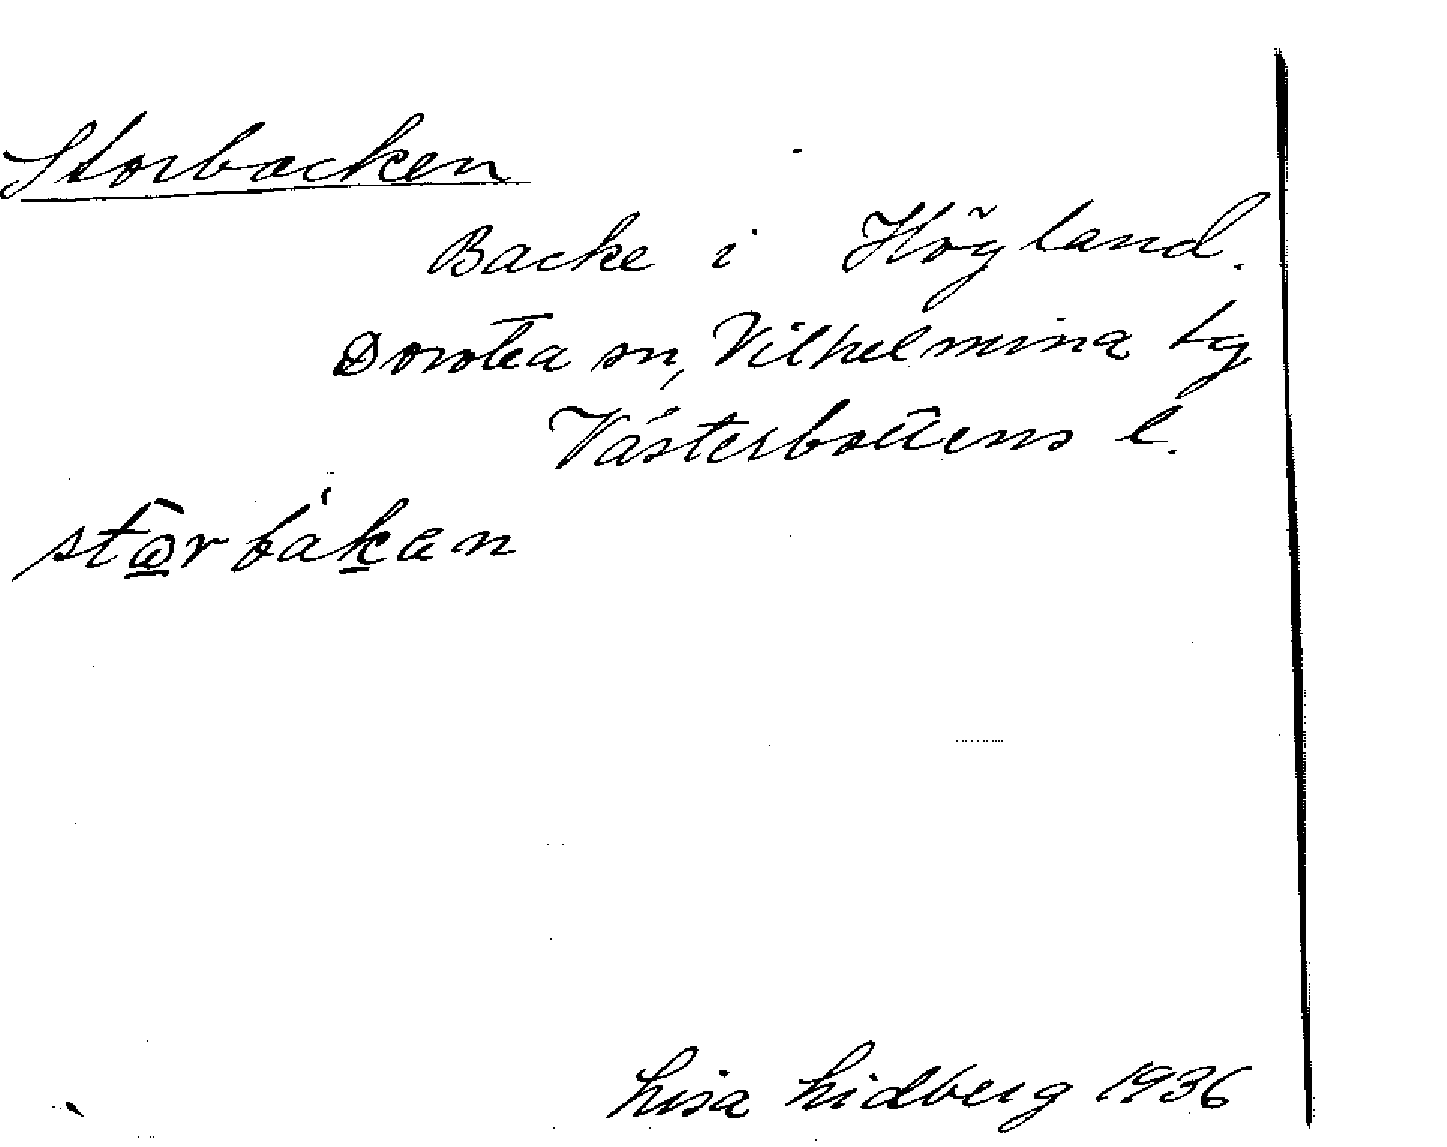 Storbacken
Backe i Högland.
Dorotea sn, Vilhelmina tg
Västerbottens l.
Lisa Lidberg 1936